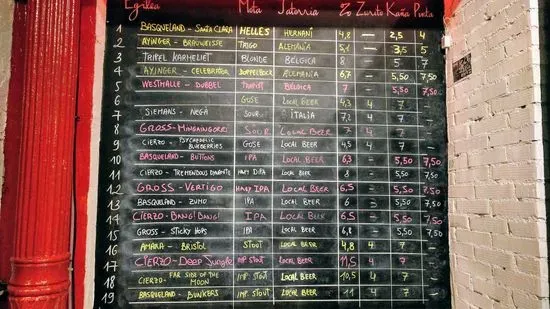 Egilea Mota Jatorria % Zurito Kaña Pinta
1 Basqueland - Santa Clara Helles Hernani 4,8 — 2,5 4
2 Ayinger - Brauweisse Trigo Alemania 5,1 — 3,5 5
3 Tripel Karmeliet Blonde Belgica 8 5 7
4 Ayinger - Celebrator Doppelbock Alemania 6,7 - 5,50 7,50
5 Westhalle - Dubbel Trapist Belgica 7 - 5,50 7,50
6 Gose Local Beer 4,3 4 7 -
7 Siemans - Nega Sour Italia 7,1 4 7 -
8 Gross - Mingaingorri Sour Local Beer 7 4 7 -
9 Cierzo - Psychedelic Blueberries Gose Local Beer 4 7 -
10 Basqueland - Buttons IPA Local Beer 6,3 - 5,50 7,50
11 Cierzo - Tremendous Local Beer 8 - 5,50 7,50
12 Gross - Vertigo Hazy IPA Local Beer 6,5 - 5,50 7,50
13 Basqueland - Zumo IPA Local Beer 6 - 5,50 7,50
14 Cierzo - Bang! Bang! IPA Local Beer 6,5 - 5,50 7,50
15 Gross - Sticky Hops IPA Local Beer - 5,50 7,50
16 Amara - Bristol Stout Local Beer 4,8 4 7 -
17 Cierzo - Deep Jungle Imp. Stout Local Beer 11,5 4 7 -
18 Cierzo - Far Side of the Moon Imp. Stout Local Beer 10,5 4 7 -
19 Basqueland - Bunkers Imp. Stout Local Beer 11 4 7 -